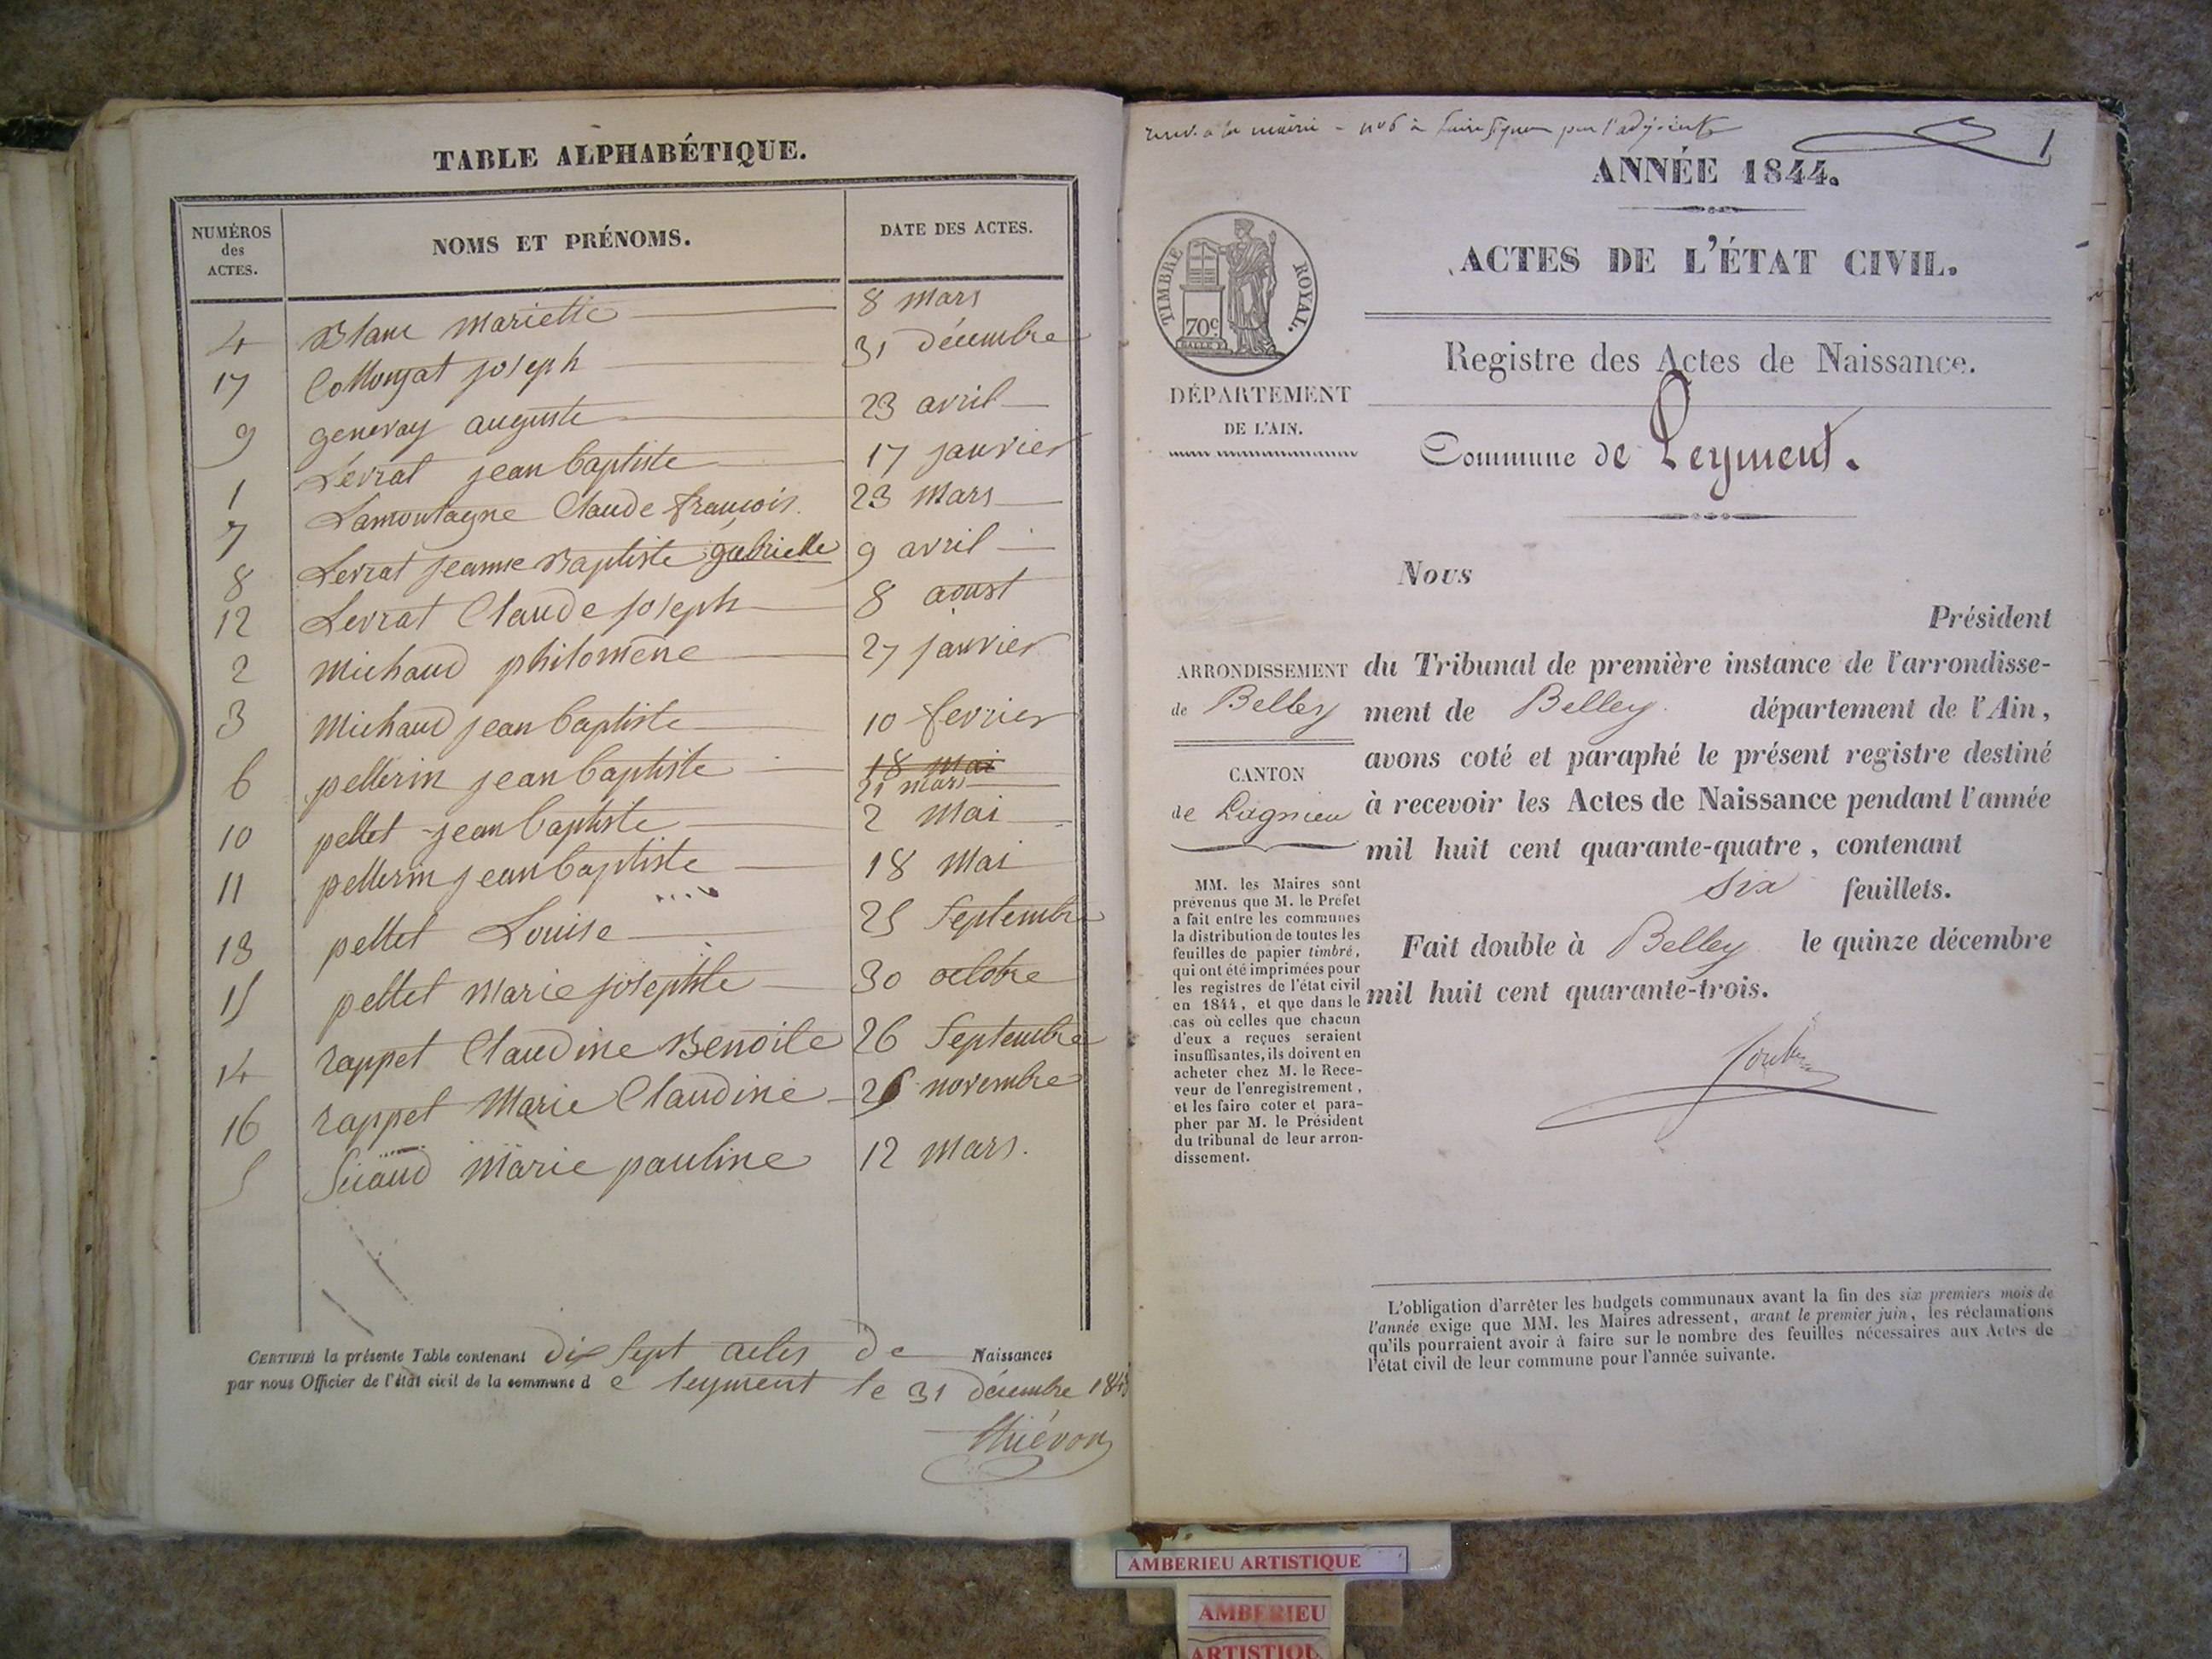 TABLE ALPHABÉTIQUE.
NUMÉROS des ACTES. NOMS ET PRÉNOMS. DATE DES ACTES.
4 Blanc mariette 8 mars
17 Collonjat joseph 31 décembre
9 genevay auguste 23 avril
1 Levrat jean baptiste 17 janvier
7 Lamontagne Claude françois. 23 mars
8 Levrat jeanne Baptiste gabrielle 9 avril
12 Levrat Claude joseph 8 aoust
2 michaud philomene 27 janvier
3 michaud jean baptiste 10 fevrier
6 pellerin jean baptiste 18 mai 21 mars
10 pellet jean baptiste 2 mai
11 pellerin jean baptiste 18 mai
13 pellet Louise 25 Septembre
15 pellet marie josephte 30 octobre
14 rappet Claudine Benoite 26 Septembre
16 rappet Marie Claudine 26 novembre
5 Sicaud marie pauline 12 mars.
CERTIFIÉ la présente Table contenant dix sept actes de Naissances
par nous Officier de l'état civil de la commune d e leyment le 31 décembre
Thiévon
à la mairie - n° 6 à faire signer par l'adjoint
1
ANNÉE 1844.
TIMBRE ROYAL.
70c
ACTES DE L'ÉTAT CIVIL.
Registre des Actes de Naissance.
DÉPARTEMENT
DE L'AIN.
Commune de Leyment.
Nous
Président
ARRONDISSEMENT
de Belley
CANTON
de Lagnieu
du Tribunal de première instance de l'arrondisse-
ment de Belley. département de l'Ain,
avons coté et paraphé le présent registre destiné
à recevoir les Actes de Naissance pendant l'année
mil huit cent quarante-quatre, contenant
six feuillets.
Fait double à Belley le quinze décembre
mil huit cent quarante-trois.
MM. les Maires sont
prévenus que M. le Préfet
a fait entre les communes
la distribution de toutes les
feuilles de papier timbré,
qui ont été imprimées pour
les registres de l'état civil
en 1844, et que dans le
cas où celles que chacun
d'eux a reçues seraient
insuffisantes, ils doivent en
acheter chez M. le Rece-
veur de l'enregistrement,
et les faire coter et para-
pher par M. le Président
du tribunal de leur arron-
dissement.
L'obligation d'arrêter les budgets communaux avant la fin des six premiers mois de
l'année exige que MM. les Maires adressent, avant le premier juin, les réclamations
qu'ils pourraient avoir à faire sur le nombre des feuilles nécessaires aux Actes de
l'état civil de leur commune pour l'année suivante.
AMBERIEU ARTISTIQUE
AMBERIEU
ARTISTIQU